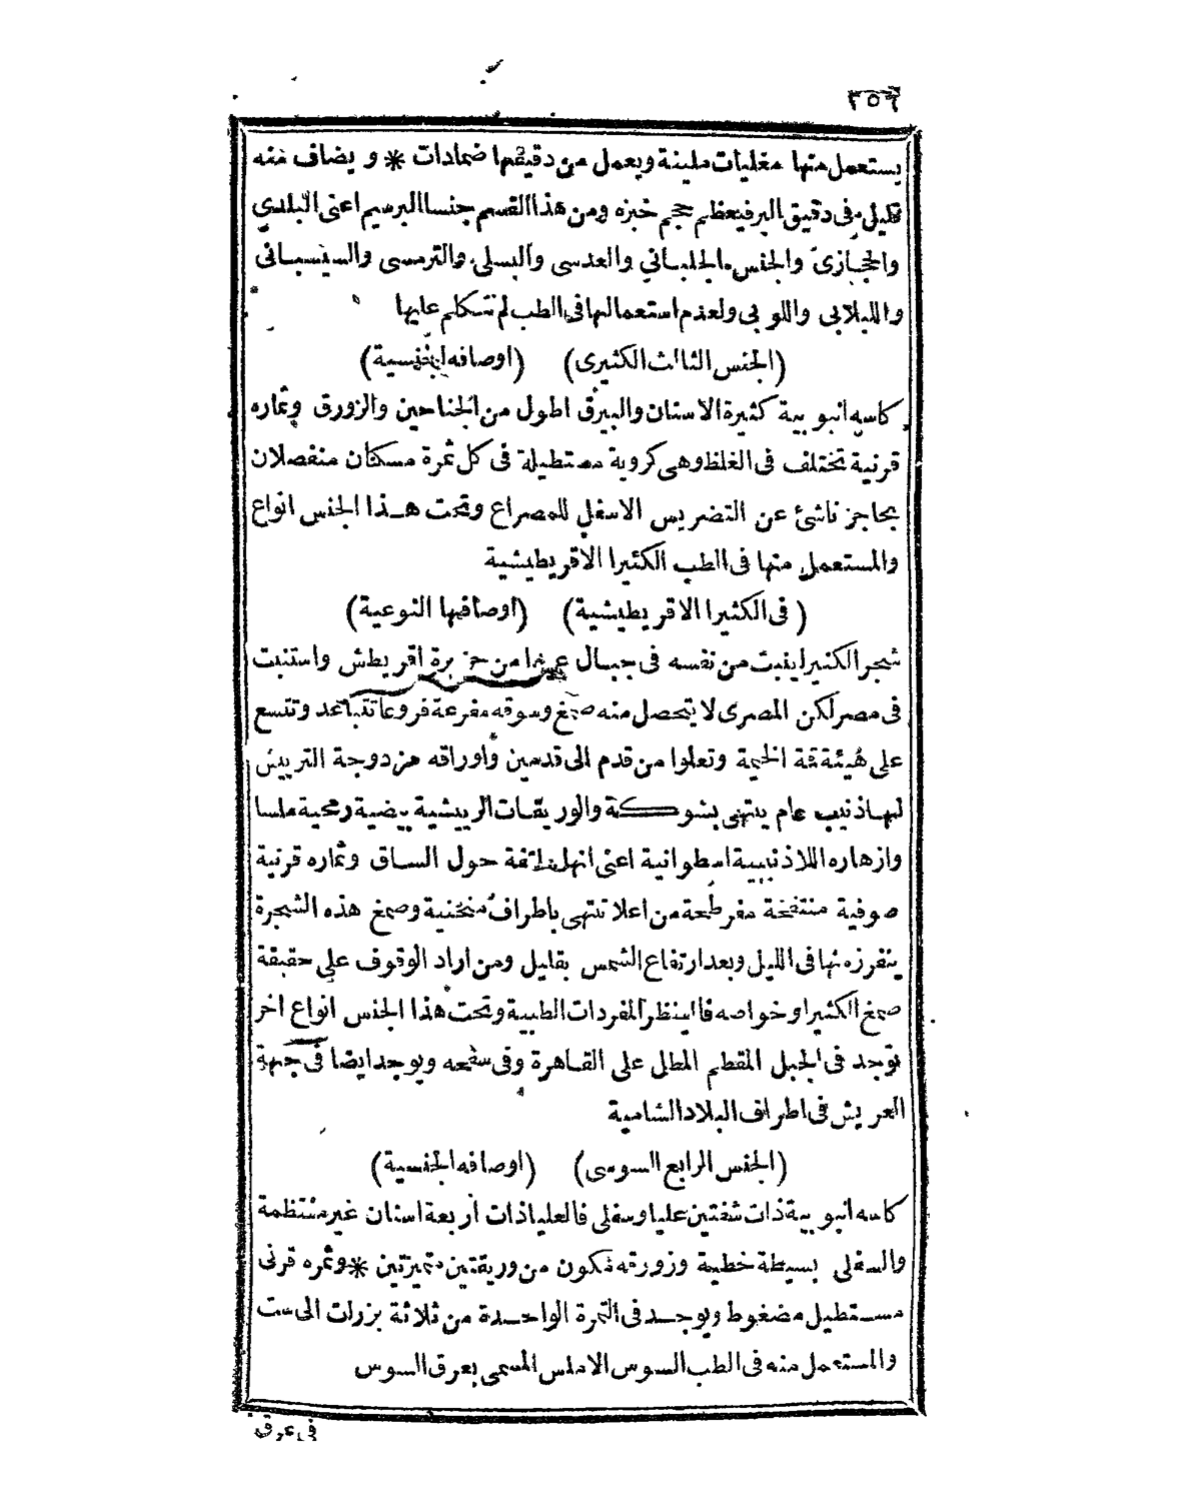 ٢٥٦
يستعمل منها مغليات ملينة ويعمل من دقيقها ضمادات * و يضاف منه
قليل فى دقيق البر فيعظم حجم خبزه ومن هذا القسم جنسا البرسيم اعنى البلدى
والحجازى والجنس الجلبانى والعدسى والبسلى والترمسى والسيسبانى
واللبلابى واللوبى ولعدم استعمالها فى الطب لم نتكلم عليها
(الجنس الثالث الكثيرى) (اوصافه الجنسية)
كاسه انبوبية كثيرة الاسنان والبيرق اطول من الجناحين والزورق وثماره
قرنية تختلف فى الغلظ وهى كروية مستطيلة فى كل ثمرة مسكنان منفصلان
بحاجز ناشئ عن التضريس الاسفل للمصراع وتحت هذا الجنس انواع
والمستعمل منها فى الطب الكثيرا الاقريطيشية
(فى الكثيرا الاقريطيشية) (اوصافها النوعية)
شجر الكثيرا ينبت من نفسه فى جبال من جزيرة اقريطش واستنبت
فى مصر لكن المصرى لا يتحصل منه صمغ وسوقه مفرعة فروعا تتباعد وتتسع
على هيئة قمة الخيمة وتعلوا من قدم الى قدمين واوراقه مزدوجة التريش
لها ذنيب عام ينتهى بشوكة والوريقات الريشية بيضية رمحية ملسا
وازهاره اللاذنيبية اسطوانية اعنى انها ملتفة حول الساق وثماره قرنية
صوفية منتفخة مفرطحة من اعلا تنتهى باطراف منحنية وصمغ هذه الشجرة
ينفرز منها فى الليل وبعد ارتفاع الشمس بقليل ومن اراد الوقوف على حقيقة
صمغ الكثيرا وخواصه فالينظر المفردات الطبية وتحت هذا الجنس انواع اخر
توجد فى الجبل المقطم المطل على القاهرة وفى سفحه ويوجد ايضا فى جهة
العريش فى اطراف البلاد الشامية
(الجنس الرابع السوسى) (اوصافه الجنسية)
كاسه انبوبية ذات شفتين عليا وسفلى فالعليا ذات اربعة اسنان غير منتظمة
والسفلى بسيطة خطية وزورقه مكون من وريقتين متميزتين * وثمره قرنى
مستطيل مضغوط ويوجد فى الثمرة الواحدة من ثلاثة بزرات الى ست
والمستعمل منه فى الطب السوس الاملس المسمى بعرق السوس
فى عرق